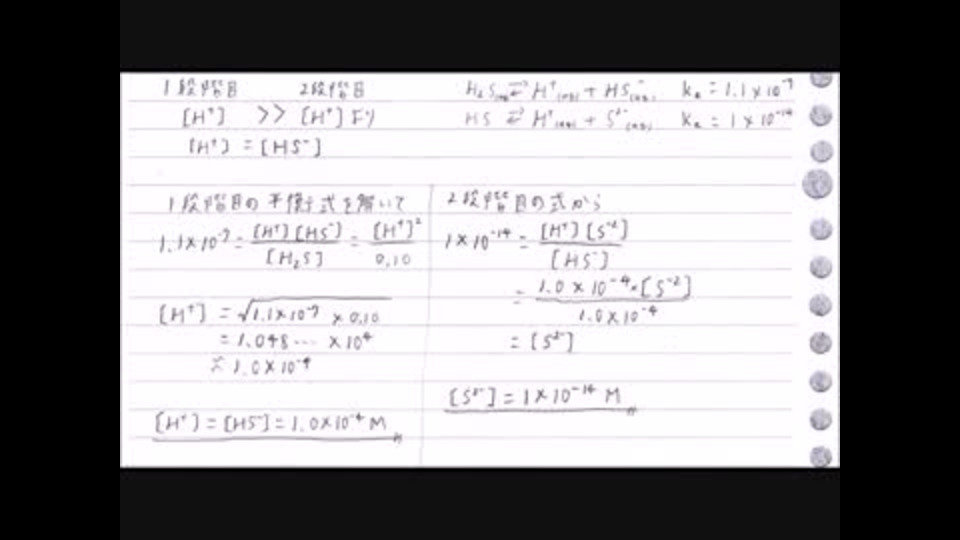 1段階目 2段階目
[H⁺] >> [H⁺]より
[H⁺] = [HS⁻]
H₂S(aq) ⇄ H⁺(aq) + HS(aq)⁻ ka = 1.1×10⁻⁷
HS ⇄ H⁺(aq) + S²⁻(aq) ka = 1×10⁻¹⁴
1段階目の平衡式を解いて
1.1×10⁻⁷ = [H⁺][HS⁻] / [H₂S] = [H⁺]² / 0.10
[H⁺] = √(1.1×10⁻⁷ × 0.10)
= 1.048… ×10⁴
≒ 1.0×10⁻⁴
[H⁺] = [HS⁻] = 1.0×10⁻⁴ M
2段階目の式から
1×10⁻¹⁴ = [H⁺][S⁻²] / [HS⁻]
= 1.0×10⁻⁴・[S⁻²] / 1.0×10⁻⁴
= [S²⁻]
[S²⁻] = 1×10⁻¹⁴ M